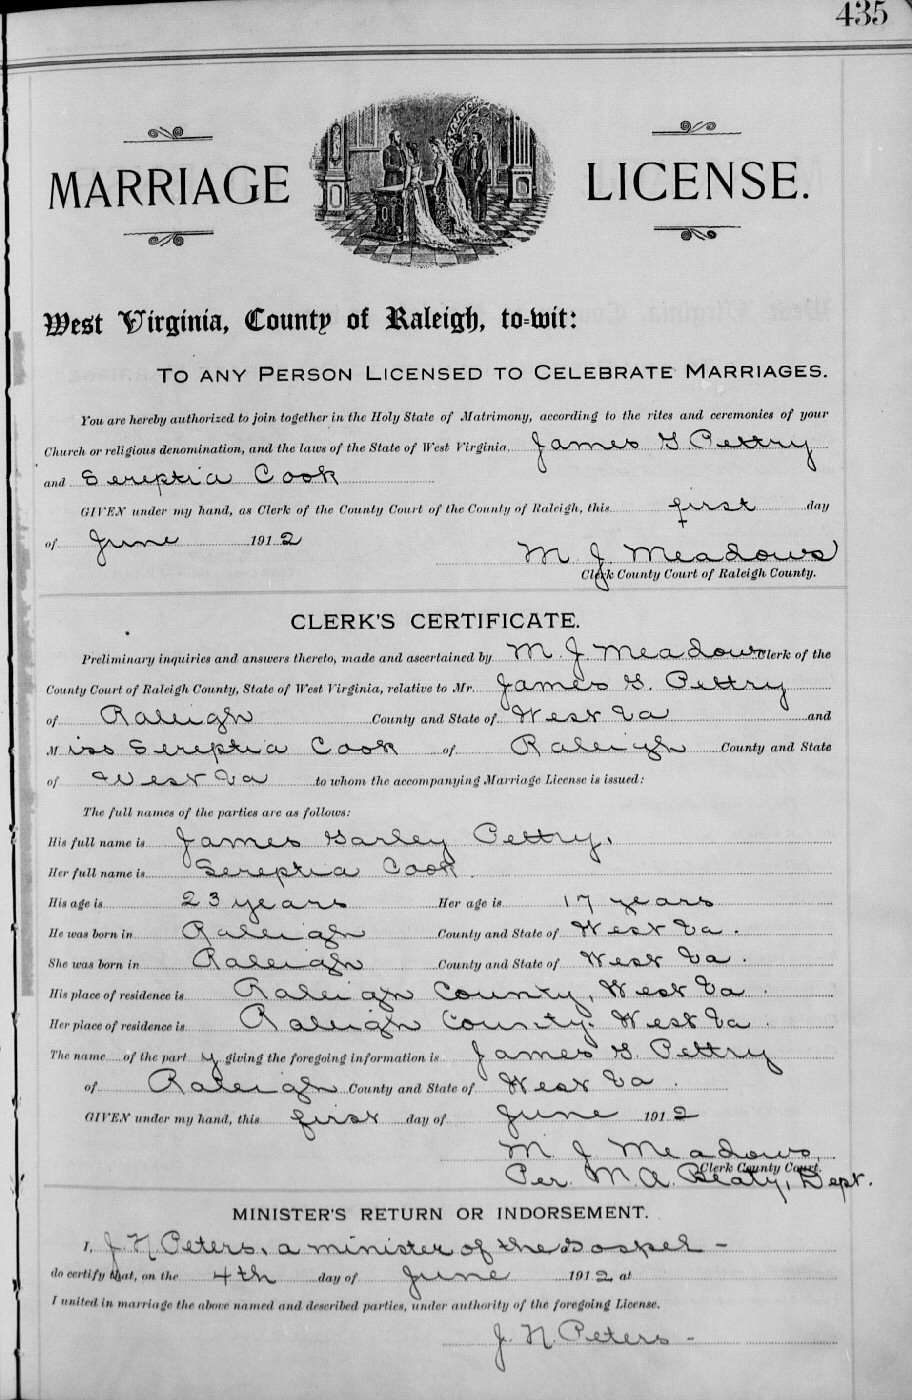 435
MARRIAGE LICENSE.
West Virginia, County of Raleigh, to-wit:
TO ANY PERSON LICENSED TO CELEBRATE MARRIAGES.
You are hereby authorized to join together in the Holy State of Matrimony, according to the rites and ceremonies of your
Church or religious denomination, and the laws of the State of West Virginia James G Pettry
and Sereptia Cook
GIVEN under my hand, as Clerk of the County Court of the County of Raleigh, this first day
of June 1912
M J Meadows
Clerk County Court of Raleigh County.
CLERK'S CERTIFICATE.
Preliminary inquiries and answers thereto, made and ascertained by M. J Meadows Clerk of the
County Court of Raleigh County, State of West Virginia, relative to Mr. James G. Pettry
of Raleigh County and State of West Va and
Miss Sereptia Cook of Raleigh County and State
of West Va to whom the accompanying Marriage License is issued:
The full names of the parties are as follows:
His full name is James Garley Pettry.
Her full name is Sereptia Cook.
His age is 23 years Her age is 17 years
He was born in Raleigh County and State of West Va.
She was born in Raleigh County and State of West Va.
His place of residence is Raleigh County, West Va.
Her place of residence is Raleigh County. West Va.
The name of the part y giving the foregoing information is James G. Pettry
of Raleigh County and State of West Va.
GIVEN under my hand, this first day of June 1912
M J Meadows,
Clerk County Court.
Per. M. A. Beaty, Dept.
MINISTER'S RETURN OR INDORSEMENT.
I, J N Peters, a minister of the Gospel -
do certify that, on the 4th day of June 1912 at
I united in marriage the above named and described parties, under authority of the foregoing License.
J. N. Peters -